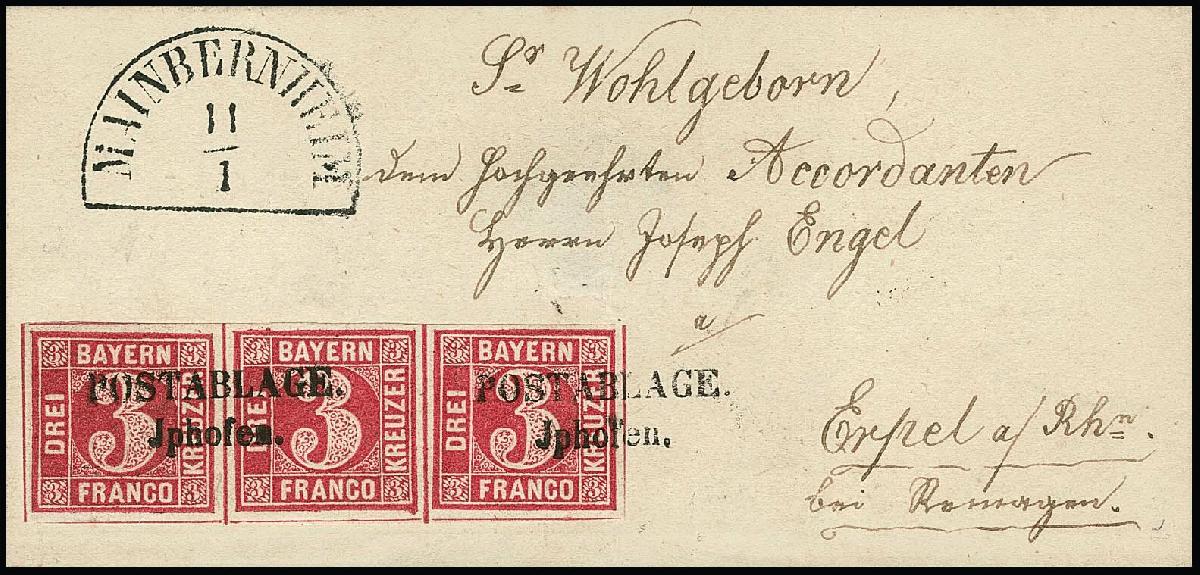 MAINBERNHEIM
11
1
Sr Wohlgeborn,
dem Hochgeehrten Accordanten
Herrn Joseph Engel
a/
Erpel a/ Rhn.
bei Remagen.
BAYERN
DREI 3 KREUZER
FRANCO
BAYERN
DREI 3 KREUZER
FRANCO
BAYERN
DREI 3 KREUZER
FRANCO
POSTABLAGE.
Jphofen.
POSTABLAGE.
Jphofen.